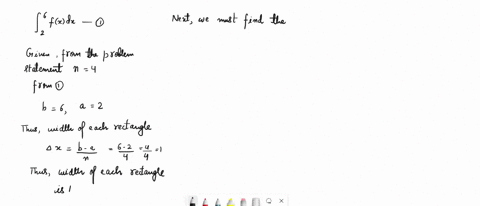 ∫₂⁶ f(x)dx — ①
Given, from the problem
statement n = 4
from ①
b = 6, a = 2
Thus, width of each rectangle
Δx = b-a/n = 6-2/4 = 4/4 = 1
Thus, width of each rectangle
is 1
Next, we must find the